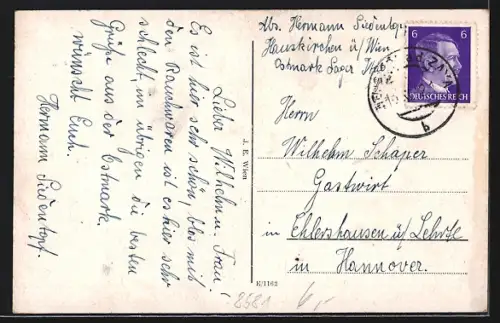 Abs. Hermann Siedentopf
Hauskirchen ü/Wien
Ostmark Lager
6 6
DEUTSCHES REICH
b
Herrn
Wilhelm Schaper
Gastwirt
in Ehlershausen ü/Lehrte
in Hannover.
Lieber Wilhelm u. Frau!
Es ist hier sehr schön, blos mit
den Rauchwaren ist es hier sehr
schlecht, im übrigen die besten
Grüße aus der Ostmark.
wünscht Euch
Hermann Siedentopf.
J. E. Wien
K/1162
8581
6,-